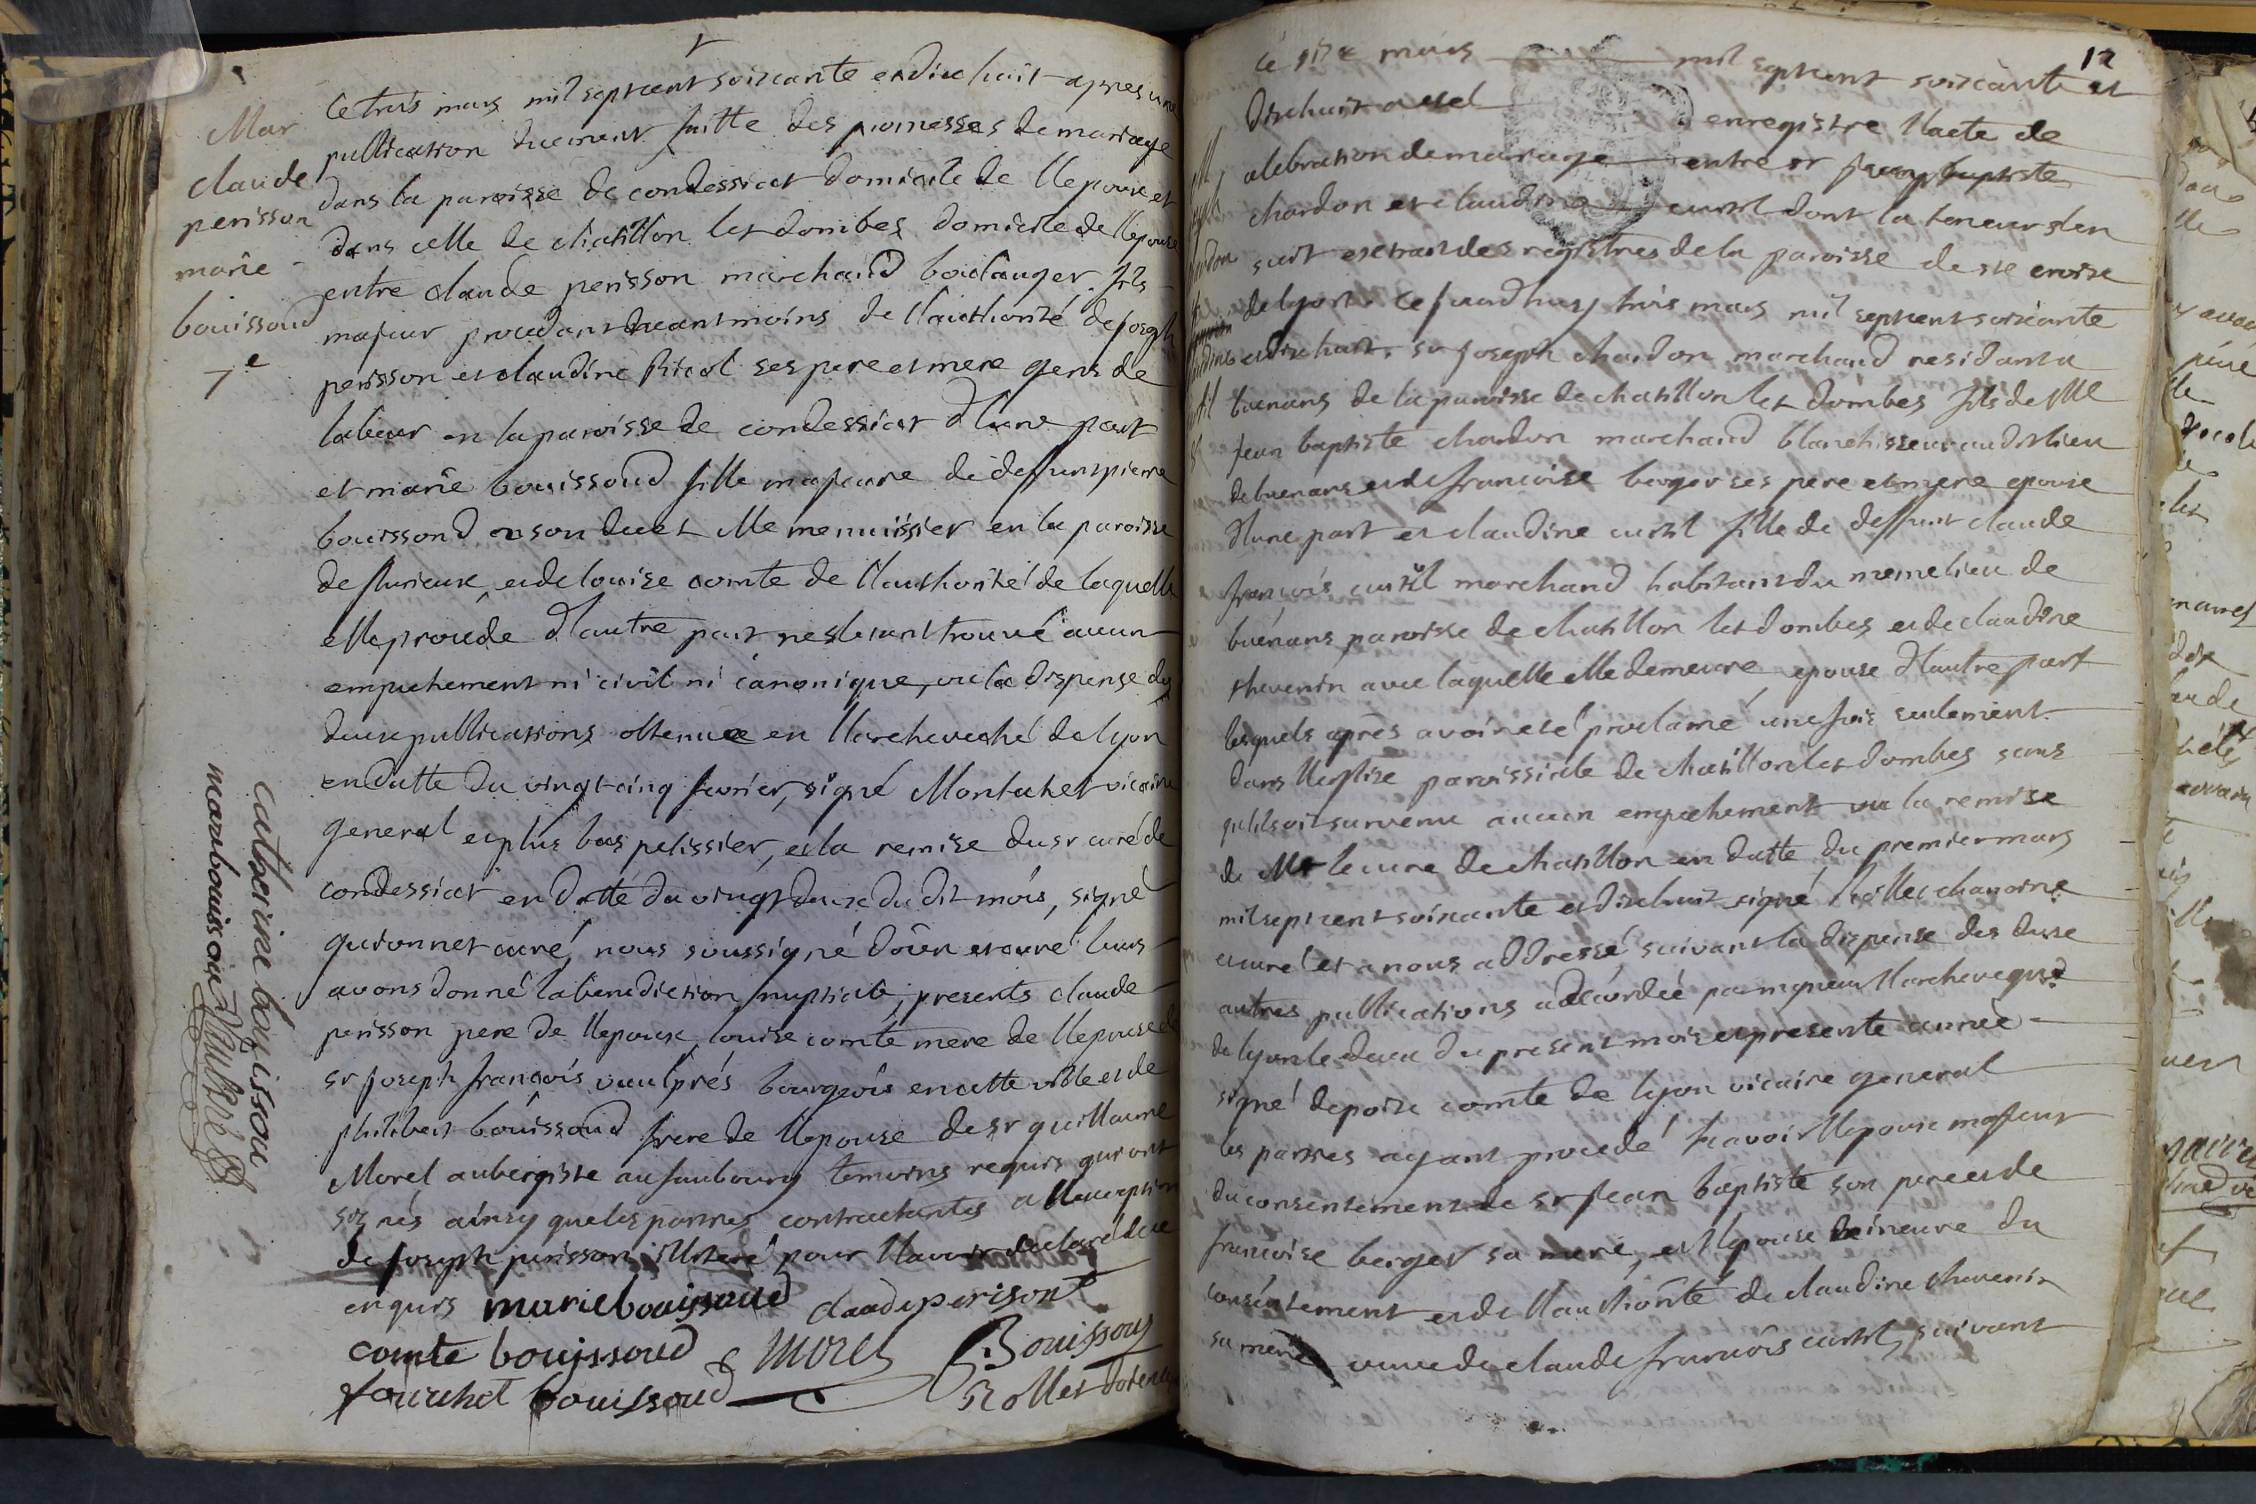 Mar
claude
perisson
marie
bouissoud
7e
ce trois mars mil septcent soixante et dix huit apres une
publication duement faitte des promesses de mariage
dans la paroisse de condessiat domicile de lepoux et
dans celle de chatillon les dombes domicile de lepouse
entre claude perisson marchand boulanger fils
majeur procedant neantmoins de l'authorité de joseph
perisson et claudine ses pere et mere gens de
labeur en la paroisse de condessiat d'une part
et marie bouissoud fille majeure de deffunt pierre
bouissoud en son vivet Me menuissier en la paroisse
de flurieux, et de louise comte de l'authorité de laquelle
elle procéde d'autre part, ne s'etant trouvé aucun
empechement ni civil ni canonique, vu la dispense des
deux publications obtenue en l'archeveché de lyon
en datte du vingt-cinq fevrier, signé Montachet vicaire
general et plus bas pelissier, et la remise du sr curé de
condessiat en datte du vingt deux du dit mois, signé
guionnet curé, nous soussigné doïen et curé leurs
avons donné la benediction nuptiale, presents claude
perisson pere de lepoux, louise comte mere de lepouse de
sr joseph françois vaulprés bourgeois en cette ville et de
philibert bouissoud frere de lepouse de sr guillaume
Morel aubergiste au faubourg temoins requis qui ont
signés ainsy que les parties contractantes a l'exception
de joseph perisson illiteré pour l'avoir declaré de ce
enquis marie bouissoud claude perison
comte bouissoud Morel Bouissoud
fouichet bouissoud Rollet doïen
catherine bouissou
marie bouissoud Vaulpré
12
ce 17e mars mil septcent soixante et
dix huit a eté enregistre l'acte de
celebration de mariage entre sr jean baptiste
chardon et claudine curtil dont la teneur s'en
suit extrait des registres de la paroisse de ste croix
de lyon. ce jourdhuy trois mars mil septcent soixante
et dix huit sr joseph chardon marchand residant a
buenans de la paroisse de chatillon les dombes fils de Me
jean baptiste chardon marchand blanchisseur audit lieu
de buenans et de francoise berger ses pere et mere epoux
d'une part et claudine curtil fille de deffunt claude
françois curtil marchand habitant du meme lieu de
buénans paroisse de chatillon les dombes et de claudine
thevenin avec laquelle elle demeure epouse d'autre part
lesquels après avoir eté proclamé une fois seulement
dans l'eglise paroissiale de chatillon les dombes sans
qu'il soit survenu aucun empechement vu la remise
de Mr le cure de chatillon en datte du premier mars
mil septcent soixante et dix huit signé Rollet chanoine
et curé et a nous addressé suivant la dispense des deux
autres publications accordée par mgneur l'archeveque
de lyon le deux du present mois et presente année
signé depoix comte de lyon vicaire general
les parties ayant procedé sçavoir l'epoux majeur
du consentement de sr jean baptiste son pere et de
francoise berger sa mere, et l'epouse mineure du
consentement et de l'authorité de claudine thevenin
sa mere veuve de claude francois curtil, suivant